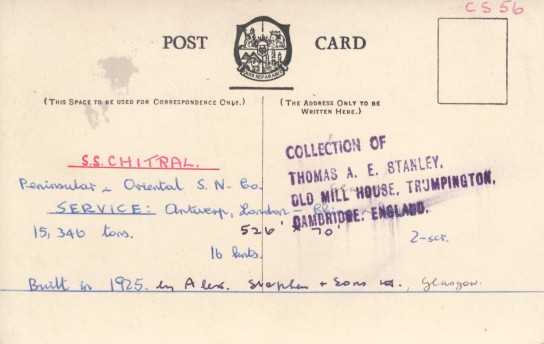 CS 56
POST CARD
QUIS SEPARABIT
(THIS SPACE TO BE USED FOR CORRESPONDENCE ONLY.)
(THE ADDRESS ONLY TO BE WRITTEN HERE.)
COLLECTION OF
THOMAS A. E. STANLEY,
OLD MILL HOUSE, TRUMPINGTON,
CAMBRIDGE, ENGLAND.
S.S. CHITRAL.
Peninsular & Oriental S. N. Co.
SERVICE: Antwerp, London -
15,346 tons. 526' x 70' 2-scr.
16 knts.
Built in 1925. by Alex. Stephen & Sons Ld., Glasgow.